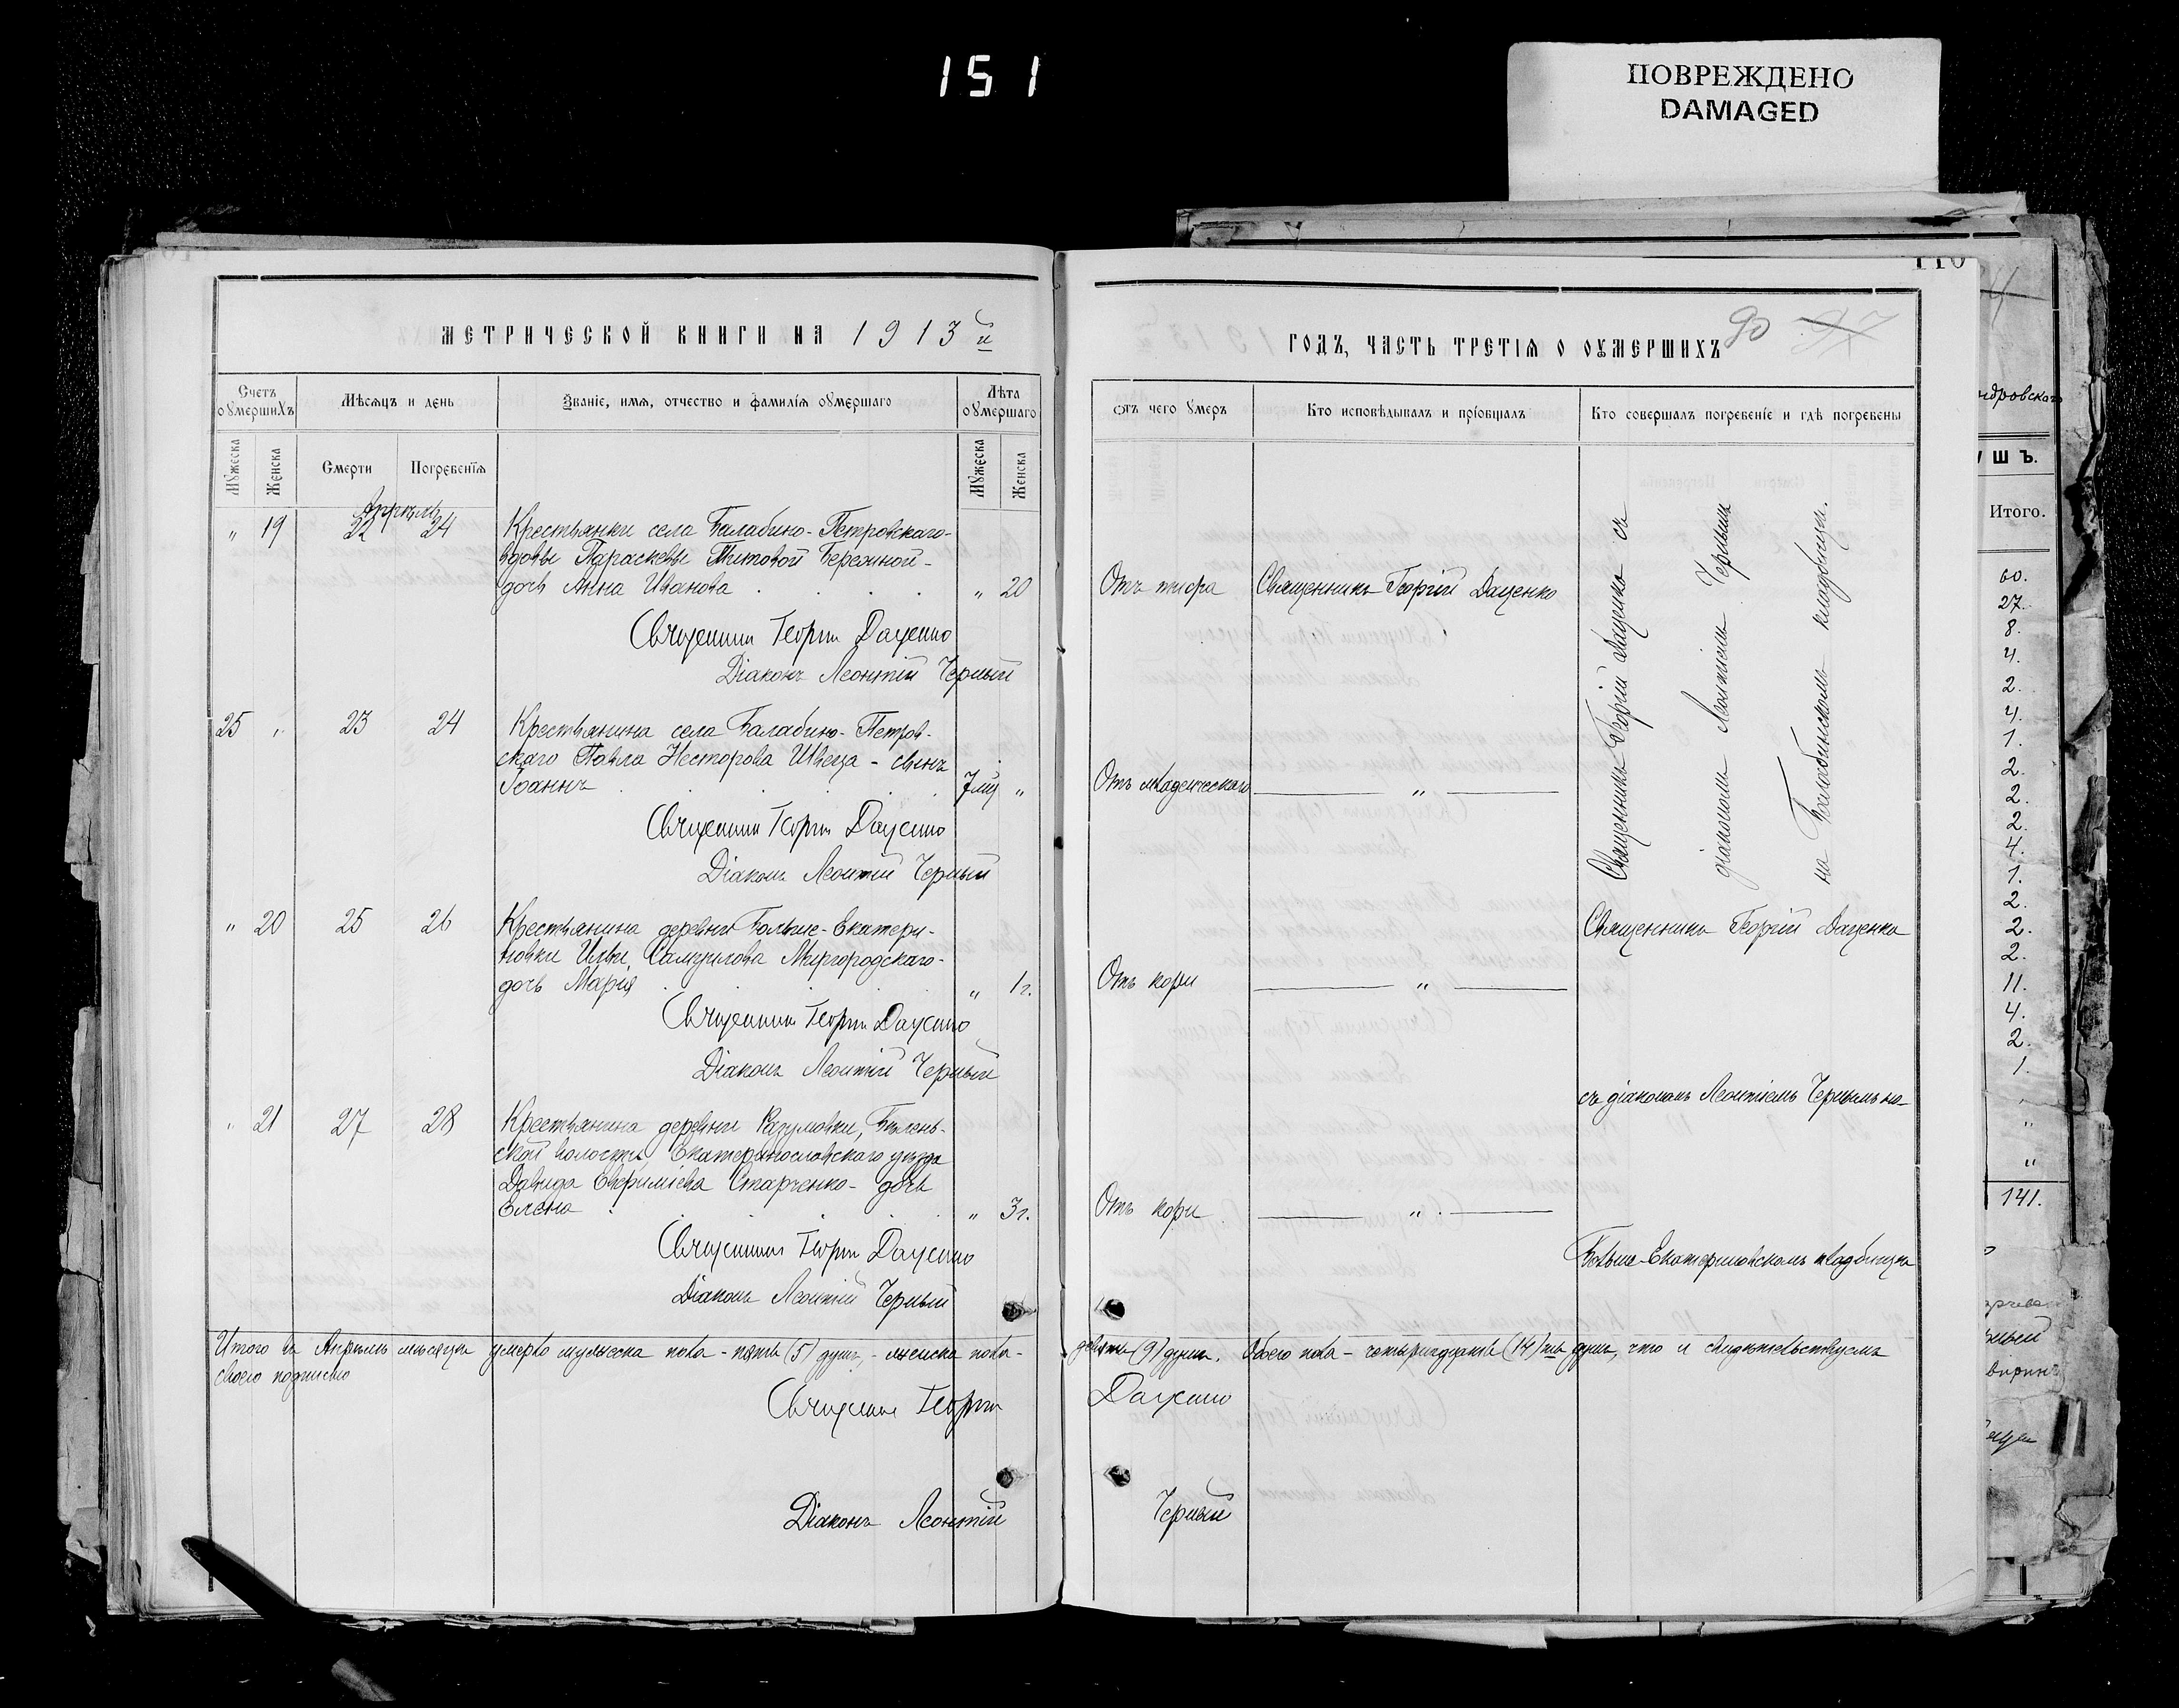 151
ПОВРЕЖДЕНО
DAMAGED
МЕТРИЧЕСКОЙ КНИГИ НА 1913й
Счетъ оумершихъ
Мѣсяцъ и день
Званіе, имя, отчество и фамилія оумершаго
Лѣта оумершаго
Мужеска
Женска
Смерти
Погребенія
Мужеска
Женска
Апрѣль
" 19 22 24 Крестьянки села Балабино-Петровскаго-
вдовы Параскевы Титовой Бережной-
дочь Анна Иванова " 20
Священникъ Георгій Даценко
Діаконъ Леонтій Черный
25 " 23 24 Крестьянина села Балабино-Петров-
скаго Павла Несторова Швеца - сынъ
Іоаннъ 7 мц "
Священникъ Георгій Даценко
Діаконъ Леонтій Черный
" 20 25 26 Крестьянина деревни Больше-Екатери-
новки Ильи Самуилова Миргородскаго-
дочь Марія " 1 г.
Священникъ Георгій Даценко
Діаконъ Леонтій Черный
" 21 27 28 Крестьянина деревни Разумовки, Бѣлень-
ской волости, Екатеринославскаго уѣзда
Давида Евфиміева Старченко- дочь
Елена " 3 г.
Священникъ Георгій Даценко
Діаконъ Леонтій Черный
Итого въ Апрѣлѣ мѣсяцѣ умерло мужеска пола - пять (5) душъ, - женска пола -
своею подписью
Священникъ Георгій
Діаконъ Леонтій
110
ГОДЪ, ЧАСТЬ ТРЕТІЯ О ОУМЕРШИХЪ
90 97
отъ чего умеръ
Кто исповѣдывалъ и пріобщалъ
Кто совершалъ погребеніе и гдѣ погребены
Отъ тифа Священникъ Георгій Даценко
Отъ младенческаго "
Отъ кори "
Отъ кори "
Священникъ Георгій Даценко съ
діакономъ Леонтіемъ Чернымъ
на Балабинскомъ кладбищѣ.
Священникъ Георгій Даценко
съ діакономъ Леонтіемъ Чернымъ на
Больше-Екатериновскомъ кладбищѣ
девять (9) душъ. Обоего пола - четырнадцать (14)ть душъ, что и свидѣтельствуемъ
Даценко
Черный
ндровскаго
УШЪ.
Итого.
60.
27.
8.
4.
2.
4.
1.
2.
2.
2.
4.
1.
2.
2.
2.
11.
4.
2.
1.
"
"
141.